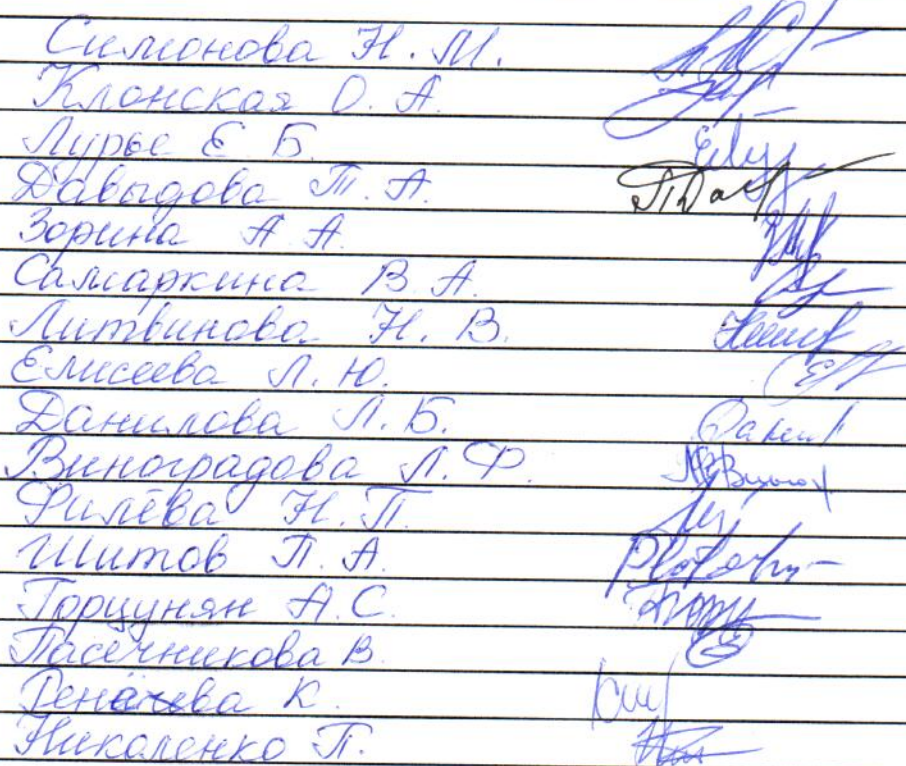 Симонова Н. М.
Клонская О. А.
Лурье Е Б.
Давыдова Т. А.
Зорина А А.
Самаркина В А.
Литвинова Н. В.
Елисеева Л. Ю.
Данилова Л. Б.
Виноградова Л. Ф.
Филёва Н. П.
Шитов П. А.
Торцунян А. С.
Пасечникова В.
К.
Николенко П.